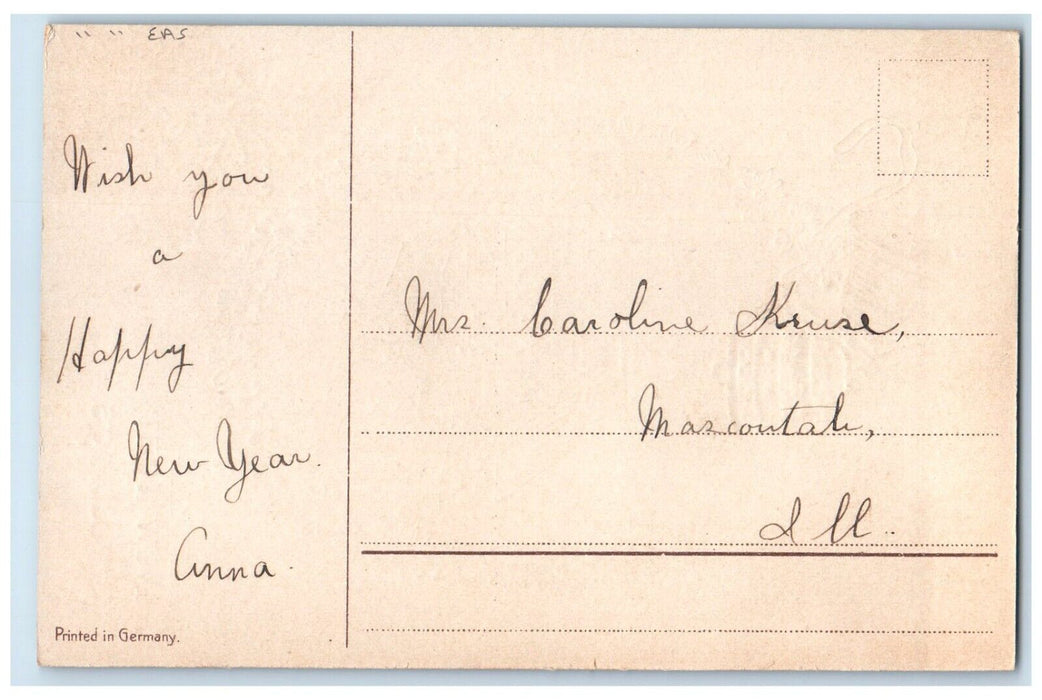 " " EAS
Wish you
a
Happy
New Year.
Anna.
Printed in Germany.
Mrs. Caroline Kruse,
Mascoutah,
Ill.